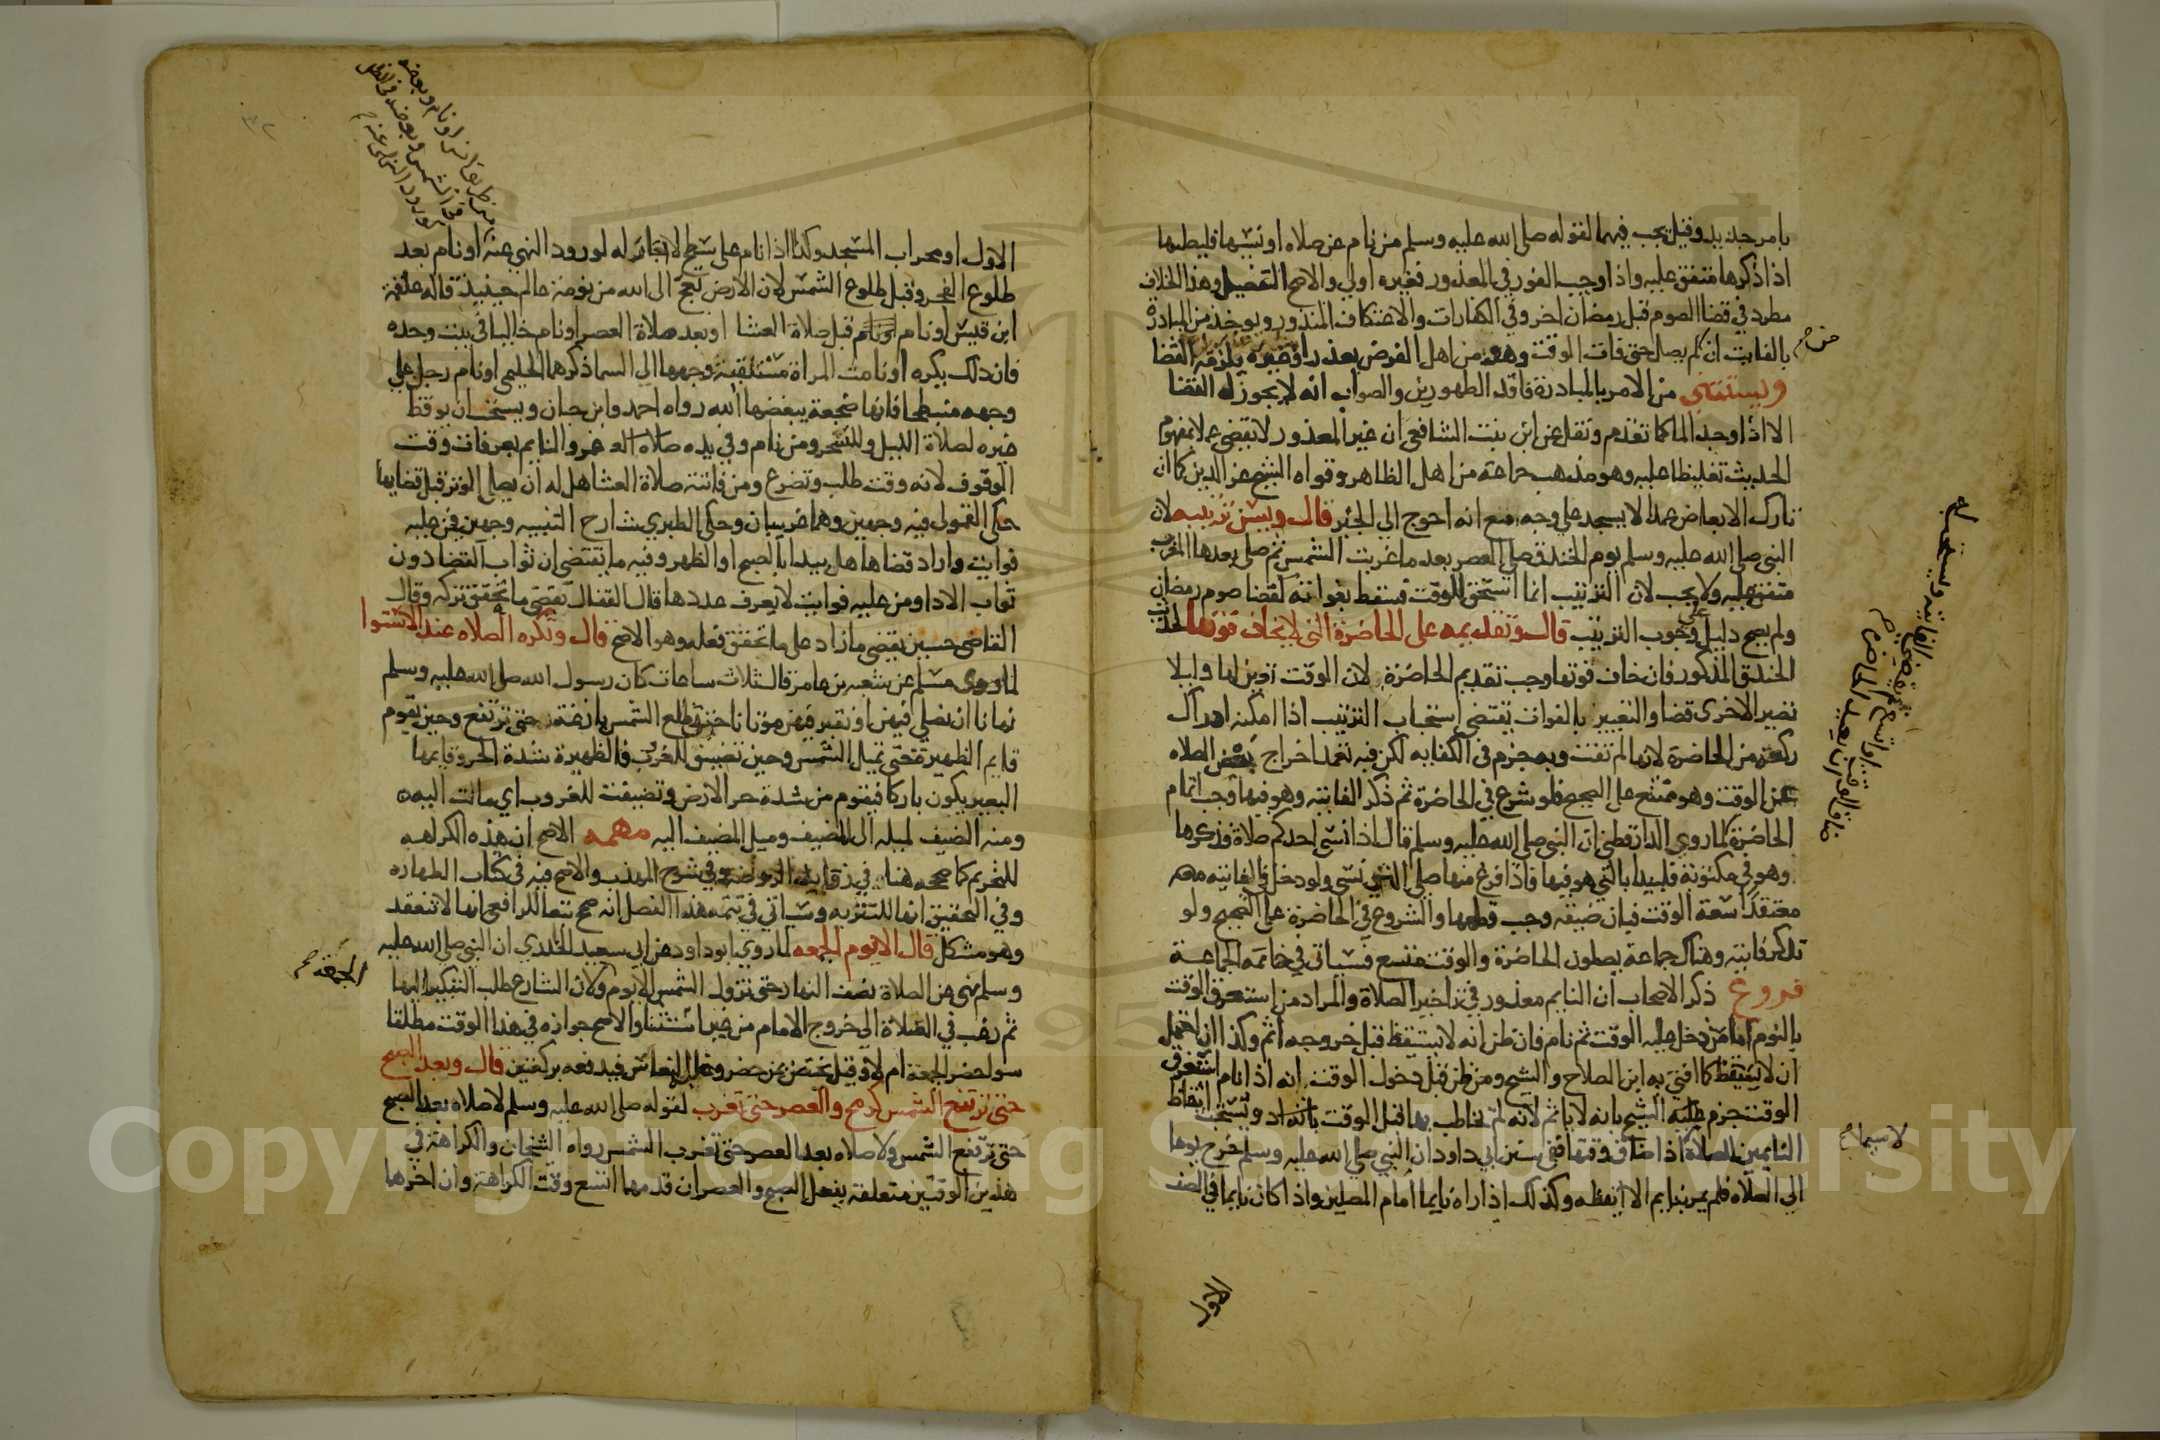 بامر جديد وقيل يجب فيهما لقوله صلى الله عليه وسلم من نام عن صلاه او نسيها فليصلها
اذا ذكرها متفق عليه واذا وجب الفور في المعذور فغيره اولي والاصح التفصيل وهذا الخلاف
مطرد في قضا الصوم قبل رمضان اخر وفي الكفارات والاعتكاف المنذور ويوخذ من المبادرة
بالفايت ان لم يصل حتى فات الوقت وهو من اهل الفرض بعذر او غيره يلزمه القضا
ويستثنى من الامر بالمبادرة فاقد الطهورين والصواب انه لا يجوز له القضا
الا اذا وجد الماكما تقدم ونقل عن ابن بنت الشافعي ان غير المعذور لا يقضي عملا بمفهوم
الحديث تغليظا عليه وهو مذهب جماعة من اهل الظاهر وقواه الشيخ عز الدين كما ان
تارك الابعاض عمدا لا يسجد على وجه مع انه احوج الي الجبر قال ويسن ترتيبه لان
النبي صلى الله عليه وسلم يوم الخندق صلى العصر بعد ما غربت الشمس ثم صلى بعدها المغرب
متفق عليه ولا يجب لان الترتيب انما استحق للوقت فسقط بفواته كقضا صوم رمضان
ولم يصح دليل على وجوب الترتيب قال وتقديمه على الحاضرة التي لا يخاف فوتها لحديث
الخندق المذكور فان خاف فوتها وجب تقديم الحاضرة لان الوقت تعين لها وليلا
تصير الاخرى قضا والتعبير بالفوات يقتضي استحباب الترتيب اذا امكنه ادراك
ركعة من الحاضرة لانها لم تفت وبه جزم في الكفايه لكن فيه تعمد اخراج بعض الصلاه
عن الوقت وهو ممتنع على الصحيح فلو شرع في الحاضرة ثم ذكر الفايته وهو فيها وجب اتمام
الحاضرة لما روي الدارقطني ان النبي صلى الله عليه وسلم قال اذا نسي احدكم صلاة فذكرها
وهو في مكتوبة فليبدا بالتي هو فيها فاذا فرغ منها صلى التي نسي ولو دخل في الفايته
معتقدا سعة الوقت فبان ضيقه وجب قطعها والشروع في الحاضرة على الصحيح ولو
تذكر فايته وهناك جماعة يصلون الحاضرة والوقت متسع فسياتي في خاتمه الجماعة
فروع ذكر الاصحاب ان النايم معذور في تاخير الصلاة والمراد من استغرق الوقت
بالنوم اما من دخل عليه الوقت ثم نام فان ظن انه لا يستيقظ قبل خروجه اثم وكذا ان احتمل
ان لا يستيقظ كما افتى به ابن الصلاح والشيخ ومن ظن قبل دخول الوقت انه اذا نام استغرق
الوقت جزم عليه الشيخ بانه لا ياثم لانه لم يخاطب بها قبل الوقت ويستحب ايقاظ
النايمين للصلاة اذا ضاق وقتها ففي سنن ابي داود ان النبي صلى الله عليه وسلم خرج يوما
الي الصلاه فلم يمر بنايم الا ايقظه وكذلك اذا راه نايما امام المصلين واذا كان نايما في الصف
لا سيما
الاول
الاول او محراب المسجد وكذا اذا نام على سطح لا له لورود النهي عنه او نام بعد
طلوع الفجر وقبل طلوع الشمس لان الارض تعج الى الله من نومة عالم حينيذ قاله علقمة
ابن قيس او نام قبل صلاة العشا او بعد صلاة العصر او نام خاليا في بيت وحده
فان ذلك يكره او نامت المراة مستلقية وجهها الي السما ذكرهما الحليمي او نام رجل على
وجهه منبطحا فانها ضجعة يبغضها الله رواه احمد وابن حبان ويستحب ان يوقظ
غيره لصلاة الليل وللتسحر ومن نام وفي يده والنايم بعرفات وقت
الوقوف لانه وقت طلب وتضرع ومن فاتته صلاة العشا هل له ان يصلي الوتر قبل قضايها
حكى القمولي فيه وجهين وهما غريبان وحكى الطبري شارح التنبيه وجهين فيمن عليه
فوايت واراد قضاها هل يبدا بالصبح او الظهر وفيه ما يقتضي ان ثواب القضا دون
ثواب الادا ومن عليه فوايت لا يعرف عددها قال القفال يقضي ما تحقق تركه وقال
القاضي حسين يقضي ما زاد على ما تحقق فعله وهو الاصح قال وتكره الصلاه عند الاستوا
لما روى مسلم عن عقبة بن عامر قال ثلاث ساعات كان رسول الله صلى الله عليه وسلم
نهانا ان نصلي فيهن او نقبر فيهن موتانا حين تطلع الشمس بازغة حتى ترتفع وحين يقوم
قايم الظهيرة حتى تميل الشمس وحين تضيف للغروب فالظهيرة شدة الحر وقايمها
البعير يكون باركا فيقوم من شدة حر الارض وتضيفت للغروب اي مالت اليه
ومنه الضيف لميله الى المضيف وميل المضيف اليه مهمه الاصح ان هذه الكراهه
للتحريم كما صححه هنا في الروضه وفي شرح المهذب والاصح فيه في كتاب الطهاره
وفي التحقيق انها للتنزيه وسياتي في تتمه هذا الفصل انه صحح تبعا للرافعي انها لا تنعقد
وهو مشكل قال الا يوم الجمعه لما روي ابو داود عن ابي سعيد الخدري ان النبي صلى الله عليه
وسلم نهى عن الصلاة نصف النهار حتى تزول الشمس الا يوم الجمعة ولان الشارع طلب التبكير اليها
ثم رغب في الصلاة الى خروج الامام من غير استثنا والاصح جوازه في هذا الوقت مطلقا
سوا حضر الجمعة ام لا وقيل يختص بمن حضر وغلبه النعاس فيدفعه بركعتين قال وبعد الصبح
حتى ترتفع الشمس كرمح والعصر حتى تغرب لقوله صلى الله عليه وسلم لا صلاه بعد الصبح
حتى ترتفع الشمس ولا صلاه بعد العصر حتى تغرب الشمس رواه الشيخان والكراهة في
هذين الوقتين متعلقة بفعل الصبح والعصر ان قدمهما اتسع وقت الكراهة وان اخرهما
الجمعة صح
Copyright © King Saud University